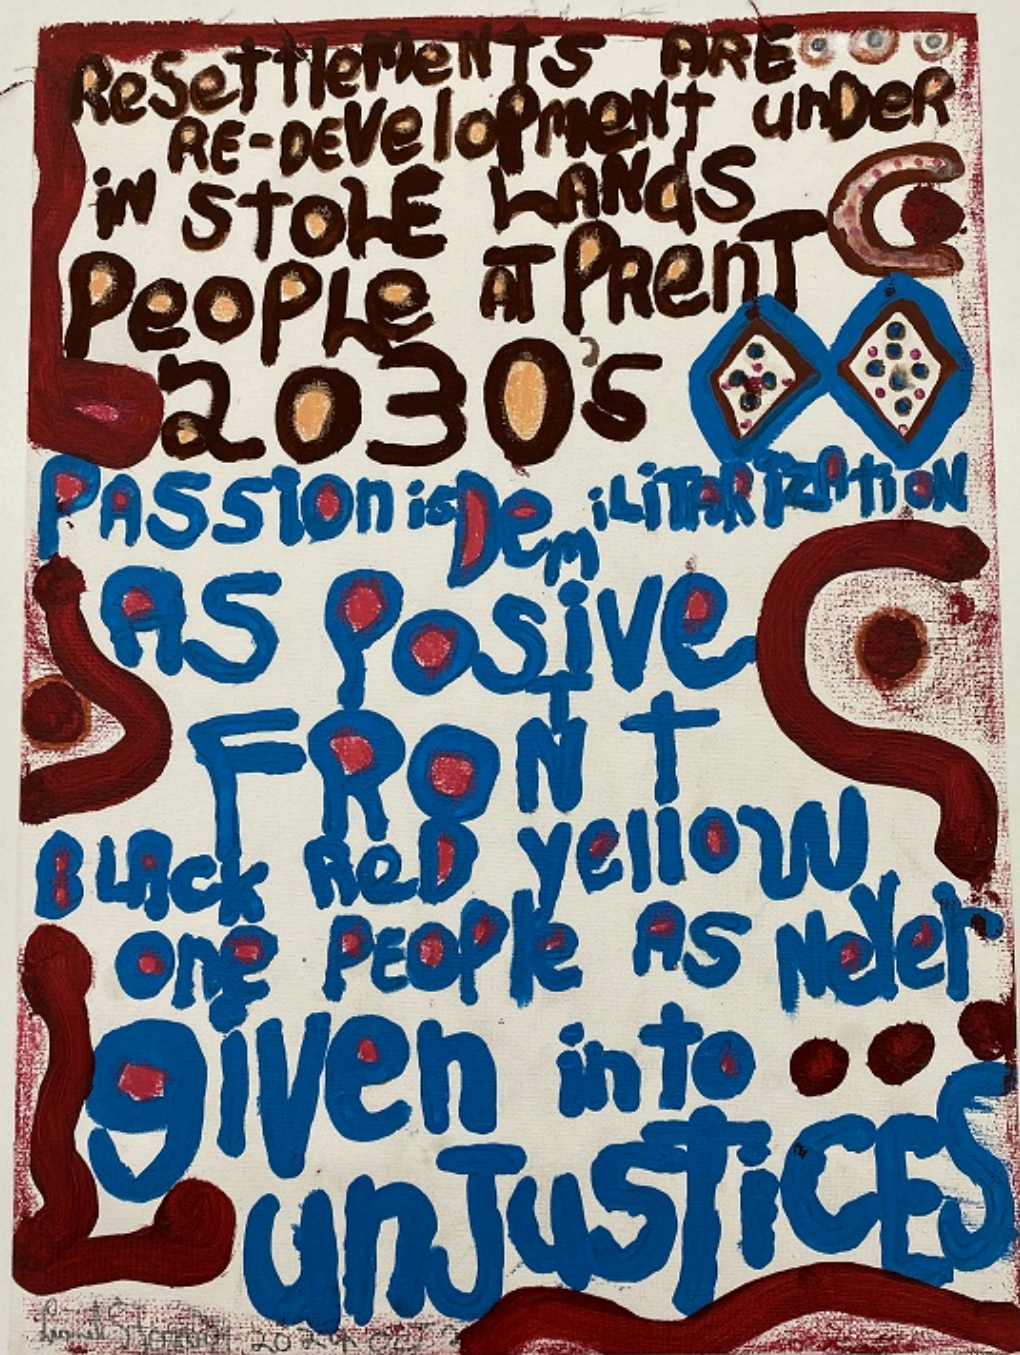 ReSettleMeNTS ARE
RE-DEVeloPMeNt unDeR
iN SToLE LANdS
PeoPLe AT PRenT
2030's
PASSIon is Dem iLiTARIZAtioN
AS PoSiTive
FRoNt
BLAck ReD yelloW
one PEoPle AS NeVer
given into
unJuSTiCES
2024 OCT